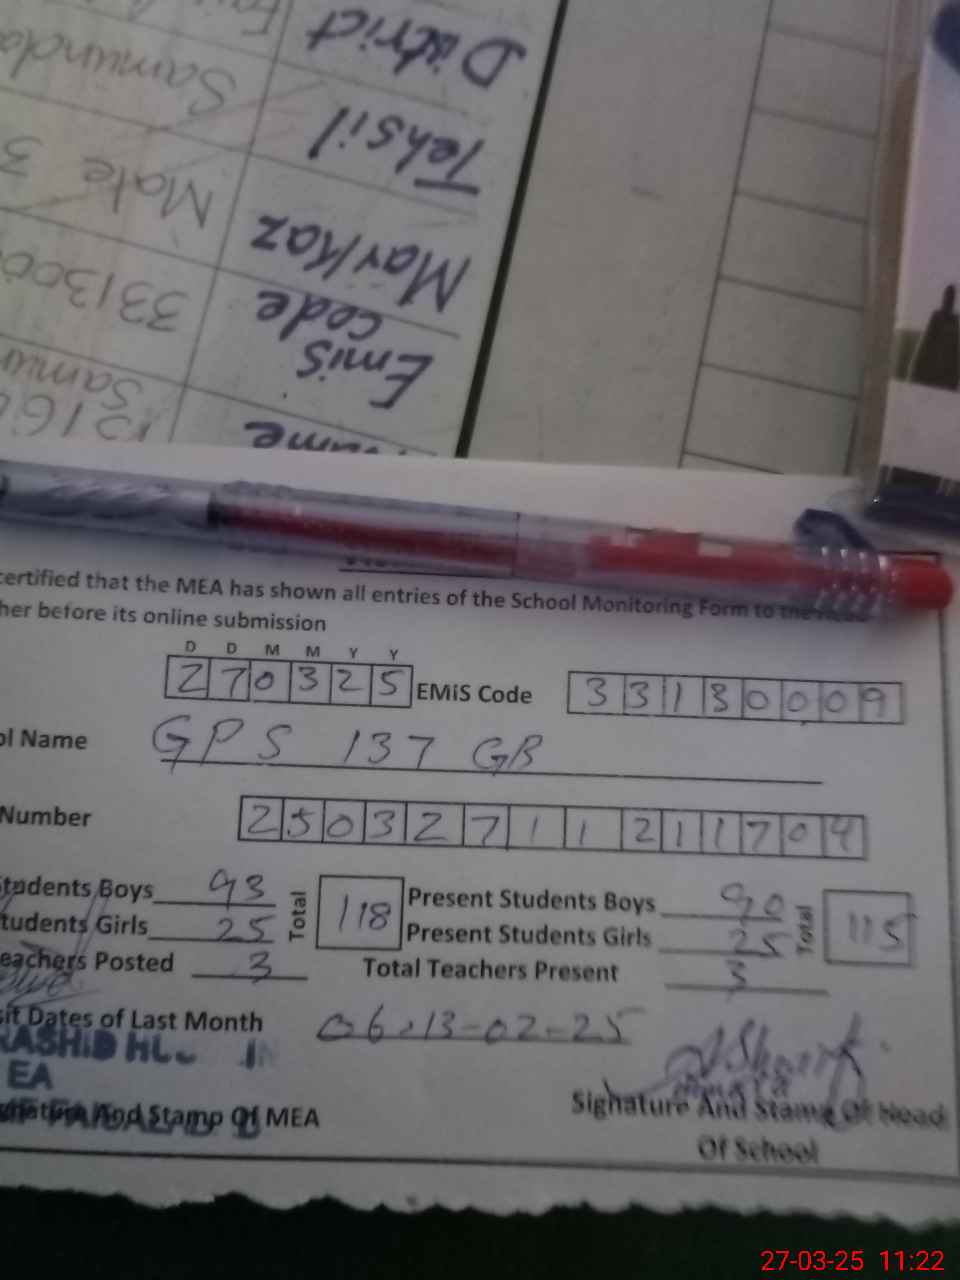 District
Tehsil
Samunda
Markaz
Male 3
Emis
code
331300
Samun
certified that the MEA has shown all entries of the School Monitoring Form to the Head
her before its online submission
D D M M Y Y
270325 EMiS Code 33130009
ol Name GPS 137 GB
Number 25032711211704
tudents Boys 93 Total 118 Present Students Boys 90 Total 115
tudents Girls 25 Present Students Girls 25
eachers Posted 3 Total Teachers Present 3
sit Dates of Last Month 06,13-02-25
RASHID
EA
And Stamp Of MEA
Signature And Stamp Of Head
Of School
27-03-25 11:22